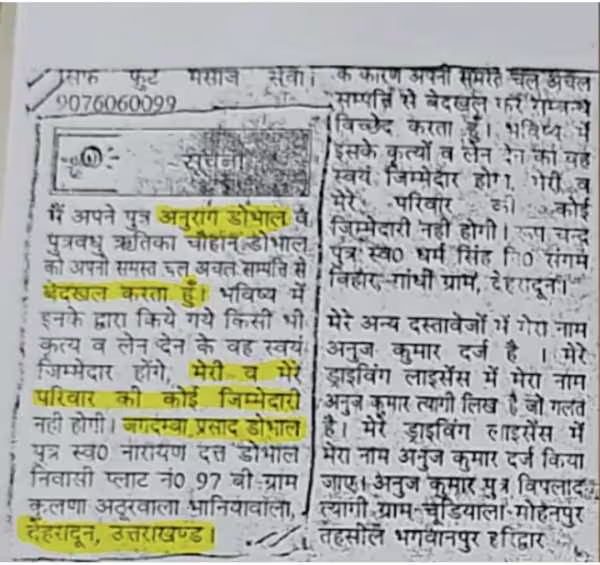 सिर्फ फुट मसाज सेवा।
9076060099
सूचना
मैं अपने पुत्र अनुराग डोभाल व
पुत्रवधु ऋतिका चौहान डोभाल
को अपनी समस्त चल अचल सम्पत्ति से
बेदखल करता हूँ। भविष्य में
इनके द्वारा किये गये किसी भी
कृत्य व लेन देन के वह स्वयं
जिम्मेदार होंगे, मेरी व मेरे
परिवार की कोई जिम्मेदारी
नही होगी। जगदम्बा प्रसाद डोभाल
पुत्र स्व0 नारायण दत्त डोभाल
निवासी प्लाट नं0 97 बी-ग्राम
कलणा अठूरवाला भानियावाला,
देहरादून, उत्तराखण्ड।
के कारण अपनी समस्त चल अचल
सम्पत्ति से बेदखल कर सम्बन्ध
विच्छेद करता हूँ। भविष्य में
इसके कृत्यों व लेन देन का वह
स्वयं जिम्मेदार होगा, मेरी व
मेरे परिवार की कोई
जिम्मेदारी नही होगी। रूप चन्द्र
पुत्र स्व0 धर्म सिंह नि0 संगम
विहार, गांधी ग्राम, देहरादून।
मेरे अन्य दस्तावेजों में मेरा नाम
अनुज कुमार दर्ज है । मेरे
ड्राइविंग लाइसेंस में मेरा नाम
अनुज कुमार त्यागी लिख है जो गलत
है। मेरे ड्राइविंग लाइसेंस में
मेरा नाम अनुज कुमार दर्ज किया
जाए। अनुज कुमार पुत्र विपलाद
त्यागी ग्राम-चूडियाला-मोहनपुर
तहसील भगवानपुर हरिद्वार